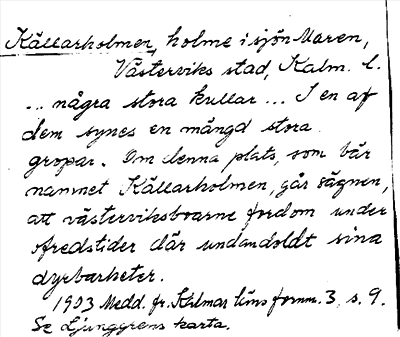 Källarholmen, holme i sjön Maren,
Västerviks stad, Kalm. l.
... några stora kullar ... I en af
dem synes en mängd stora
gropar. Om denna plats, som bär
namnet Källarholmen, går sägnen,
att västerviksboarne fordom under
ofredstider där undandoldt sina
dyrbarheter.
1903 Medd. fr. Kalmar läns fornm. 3, s. 9.
Se Ljunggrens karta.